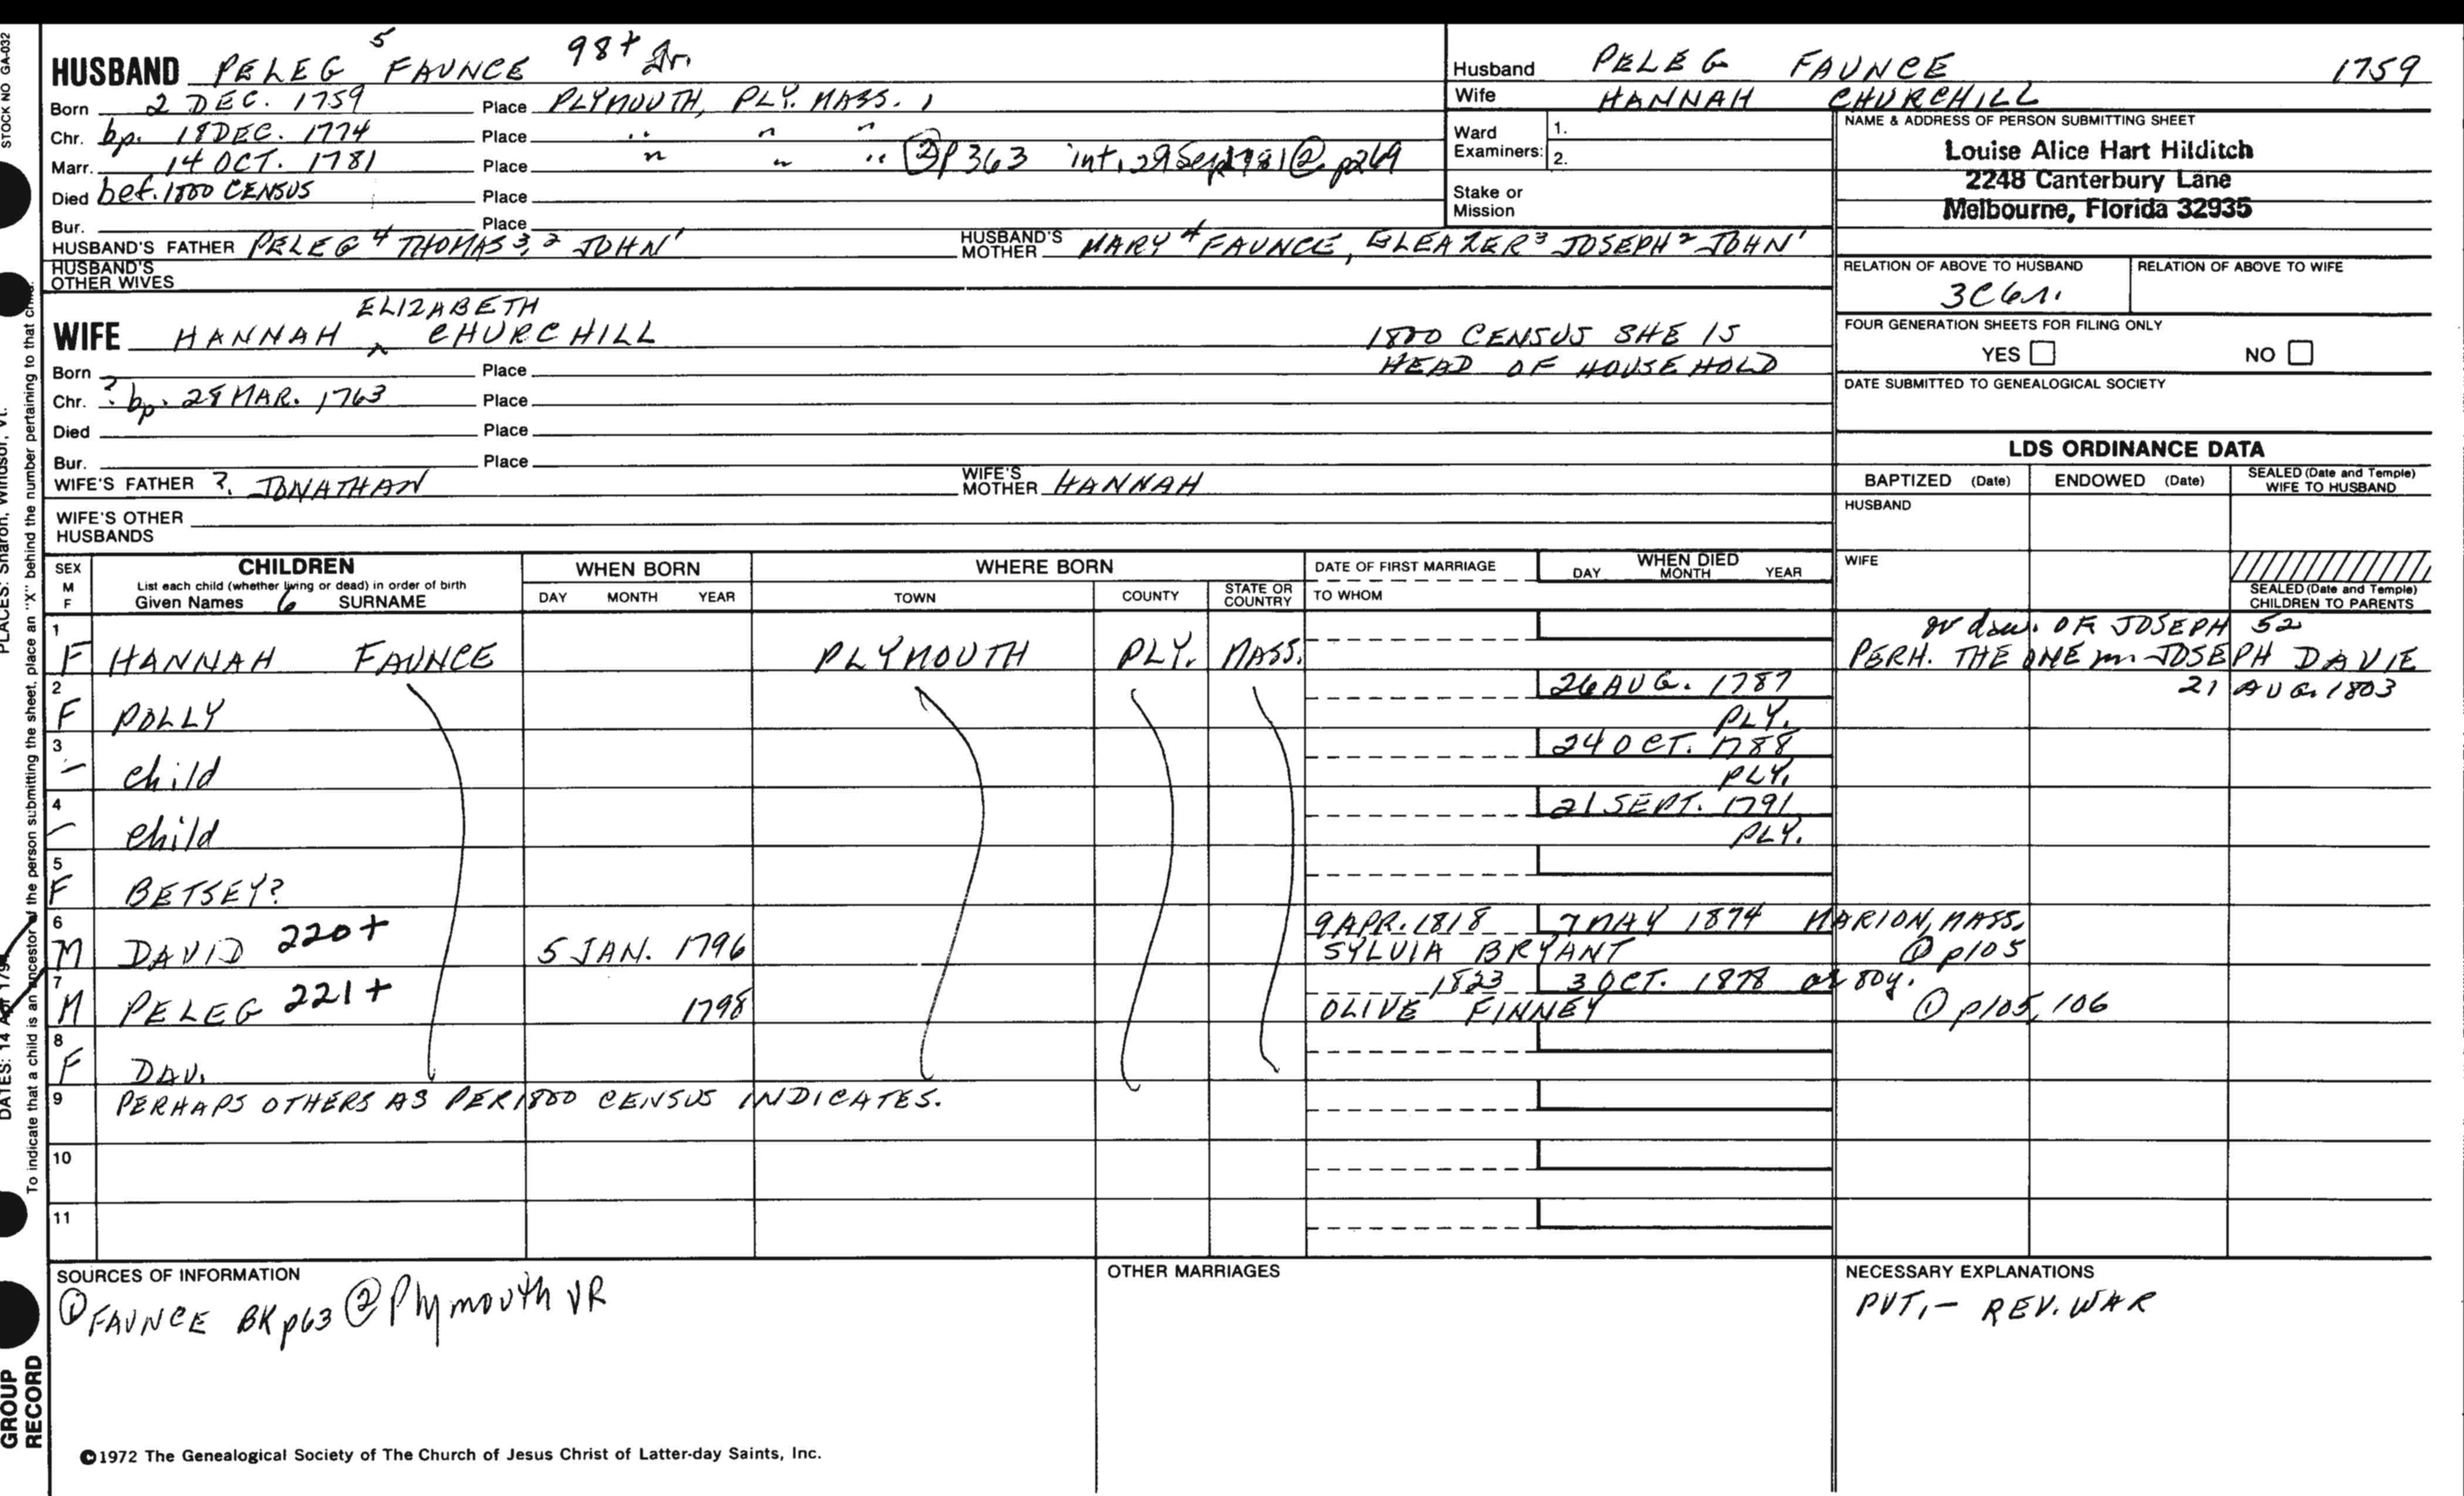 STOCK NO GA-032
HUSBAND PELEG 5 FAUNCE 98+ Jr.
Born 2 DEC. 1759 Place PLYMOUTH, PLY. MASS.
Chr. bp. 18 DEC. 1774 Place " " "
Marr. 14 OCT. 1781 Place " " " ② p 363 int. 29 Sep 1781 ② p269
Died bef. 1800 CENSUS Place
Bur. Place
HUSBAND'S FATHER PELEG 4 THOMAS 3, 2 JOHN 1 HUSBAND'S MOTHER MARY 4 FAUNCE, ELEAZER 3 JOSEPH 2 JOHN 1
HUSBAND'S OTHER WIVES
ELIZABETH
WIFE HANNAH ^ CHURCHILL 1800 CENSUS SHE IS
HEAD OF HOUSEHOLD
Born Place
Chr. ? bp. 28 MAR. 1763 Place
Died Place
Bur. Place
WIFE'S FATHER ?. JONATHAN WIFE'S MOTHER HANNAH
WIFE'S OTHER HUSBANDS
Husband PELEG FAUNCE 1759
Wife HANNAH CHURCHILL
Ward Examiners: 1.
2.
Stake or Mission
NAME & ADDRESS OF PERSON SUBMITTING SHEET
Louise Alice Hart Hilditch
2248 Canterbury Lane
Melbourne, Florida 32935
RELATION OF ABOVE TO HUSBAND RELATION OF ABOVE TO WIFE
3C6r.
FOUR GENERATION SHEETS FOR FILING ONLY
YES NO
DATE SUBMITTED TO GENEALOGICAL SOCIETY
LDS ORDINANCE DATA
BAPTIZED (Date) ENDOWED (Date) SEALED (Date and Temple) WIFE TO HUSBAND
HUSBAND
WIFE
SEALED (Date and Temple) CHILDREN TO PARENTS
SEX M F CHILDREN WHEN BORN WHERE BORN DATE OF FIRST MARRIAGE WHEN DIED
List each child (whether living or dead) in order of birth
Given Names 6 SURNAME DAY MONTH YEAR TOWN COUNTY STATE OR COUNTRY TO WHOM DAY MONTH YEAR
gr dau. OF JOSEPH 52
1 F HANNAH FAUNCE PLYMOUTH PLY. MASS. PERH. THE ONE m. JOSEPH DAVIE
21 AUG. 1803
2 F POLLY 26 AUG. 1787
PLY.
3 - child 24 OCT. 1788
PLY.
4 - child 21 SEPT. 1791
PLY.
5 F BETSEY?
6 9 APR. 1818 7 MAY 1874 MARION, MASS.
M DAVID 220+ 5 JAN. 1796 SYLVIA BRYANT ① p105
7 1823 3 OCT. 1878 ae 80y.
M PELEG 221+ 1798 OLIVE FINNEY ① p105, 106
8 F DAU.
9 PERHAPS OTHERS AS PER 1800 CENSUS INDICATES.
10
11
SOURCES OF INFORMATION
① FAUNCE BK p63 ② Plymouth VR
OTHER MARRIAGES
NECESSARY EXPLANATIONS
PVT. - REV. WAR
©1972 The Genealogical Society of The Church of Jesus Christ of Latter-day Saints, Inc.
To indicate that a child is an ancestor of the person submitting the sheet, place an "X" behind the number pertaining to that child.
PLACES: Sharon, Windsor, Vt.
DATES: 14 Apr 179
GROUP
RECORD